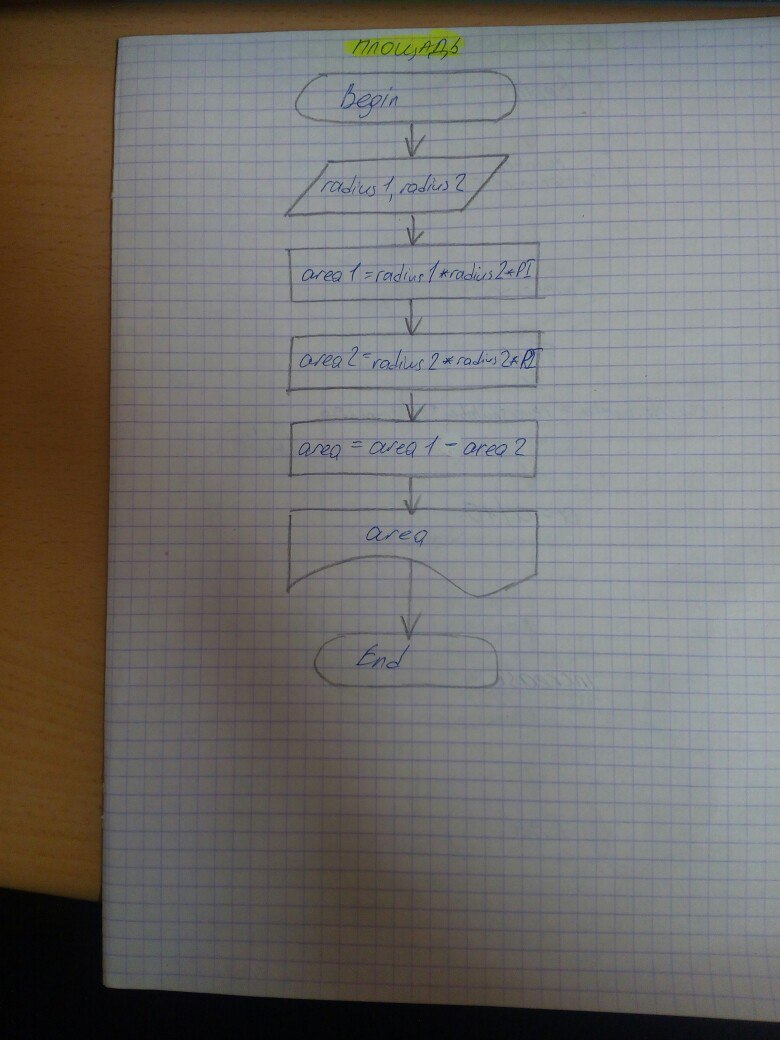 ПЛОЩАДЬ
Begin
radius1, radius2
area1=radius1*radius2*PI
area2=radius2*radius2*PI
area = area1 - area2
area
End